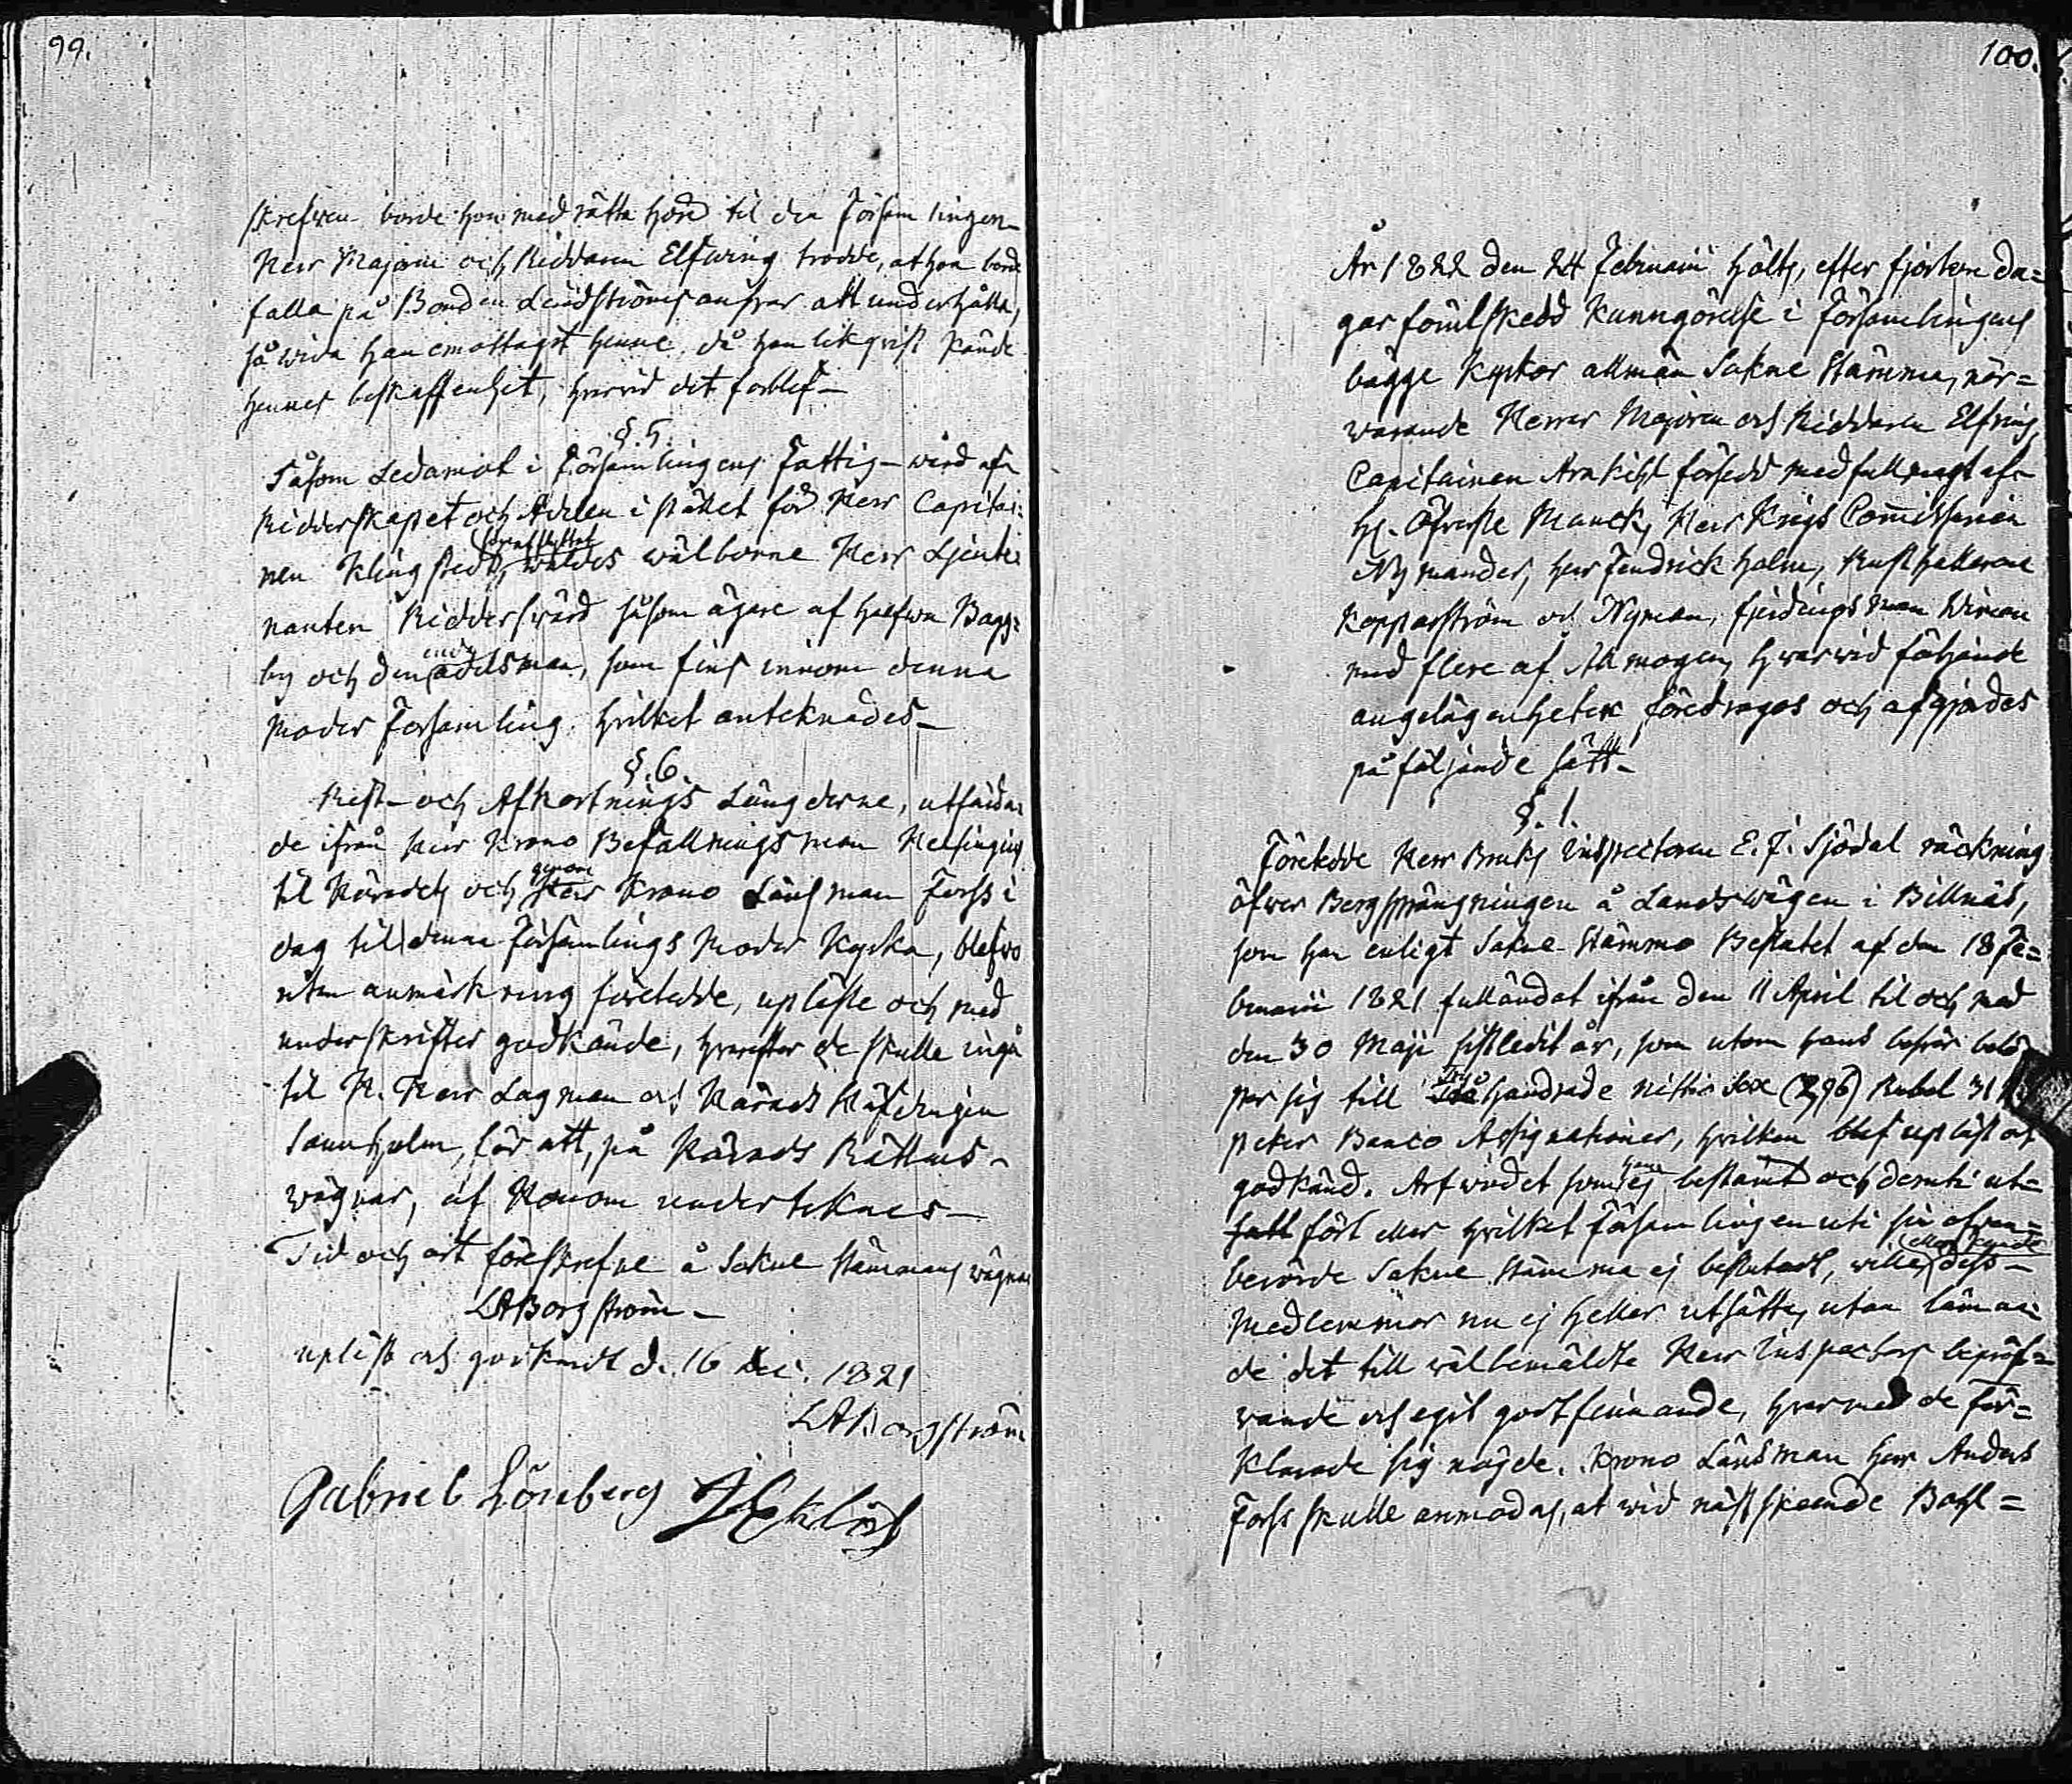 99.
skrefwen borde hon med rätta höra til den Församlingen
Herr Majoren och Riddaren Elfwing trodde, at hon borde
falla på Bonden Lindströms ansvar att underhålla,
så wida han emottagit henne, då han likgvist kände
hennes beskaffenhet, hvarvid det forblef -
§. 5.
Såsom Ledamot i Församlingens Fattig-wård af
Ridderskapet och Adelen i stället för Herr Capitai-
nen Klingstedt, waldes wälborne Herr Lieute-
nanten Riddersvärd såsom ägare af halfwa Bagg-
by och den enda adelsman, som fins innom denna
moder Församling. hvilket anteknades -
§. 6.
Rest- och Afkortnings Längderne, utfärda-
de ifrån Herr Krono Befallningsman Helsingius
til Härads och genom Herr Krono Länsman Forss i
dag til denna Församlings Moder Kyrka, blefwo
utan anmärkning företedde, upläste och med
underskrifter godkände, hvarefter de skulle ingå
til H. Herr Lagman och Härads Höfdingen
Sannholm, för att, på Härads Rättens
wägnar, af Honom underteknas -
Tid och ort föreskrefne å Sokne Stämmans wägnar
LABorgström -
upläst och godkändt d. 16 Dec. 1821
LABorgström
Gabriel Lönberg JEklöf
100.
År 1822 den 24 Februarii hölts, efter fjorton da=
gar förut skedd Kunngörelse i Församlingens
bägge Kyrkor allmän Sokne Stämma, när=
warande Herrar Majoren och Riddaren Elfving,
Capitainen Arnkihl försedd med fullmagt af
H. Öfverste Munck, Herr Krigs Commissarien
Nymander, Herr Fendrick Holm, Rusthållarne
Kopparström och Nyman, fjerdingsman Wiman
med flere af Allmogen, hwarwid följande
angelägenheter föredrogos och afgjordes
på följande sätt -
§. 1.
Företedde Herr Bruks Inspectoren E. J. Sjödal räckning
öfwer Bergsprängningen å Landswägen i Billnäs,
som han enligt Sokne Stämmo Beslutet af den 18 Fe=
bruarii 1821 fulländat ifrån den 11 April til och med
den 30 Maji sistledit år, som utom hans besvär belö
per sig till Två hundrade nittio sex (296) Rubel 31
peker Banco Assignationer, hvilken blef upläst och
godkänd. Arfwodet som hans ej bestämt och deruti ut=
fört eller hvilket Församlingen uti sin ofvan=
berörde Sokne Stämma ej beslutadt, wille eller kunde dess
Medlemmar nu ej heller utsätta, utan lämna=
de det till wälbemälte Herr Inspectors bepröf=
wande och egit godtfinnande, hvarmed de för=
klarade sig nöjde. Krono Länsman Herr Anders
Forss skulle anmodas, at wid nästskeende Bohl=